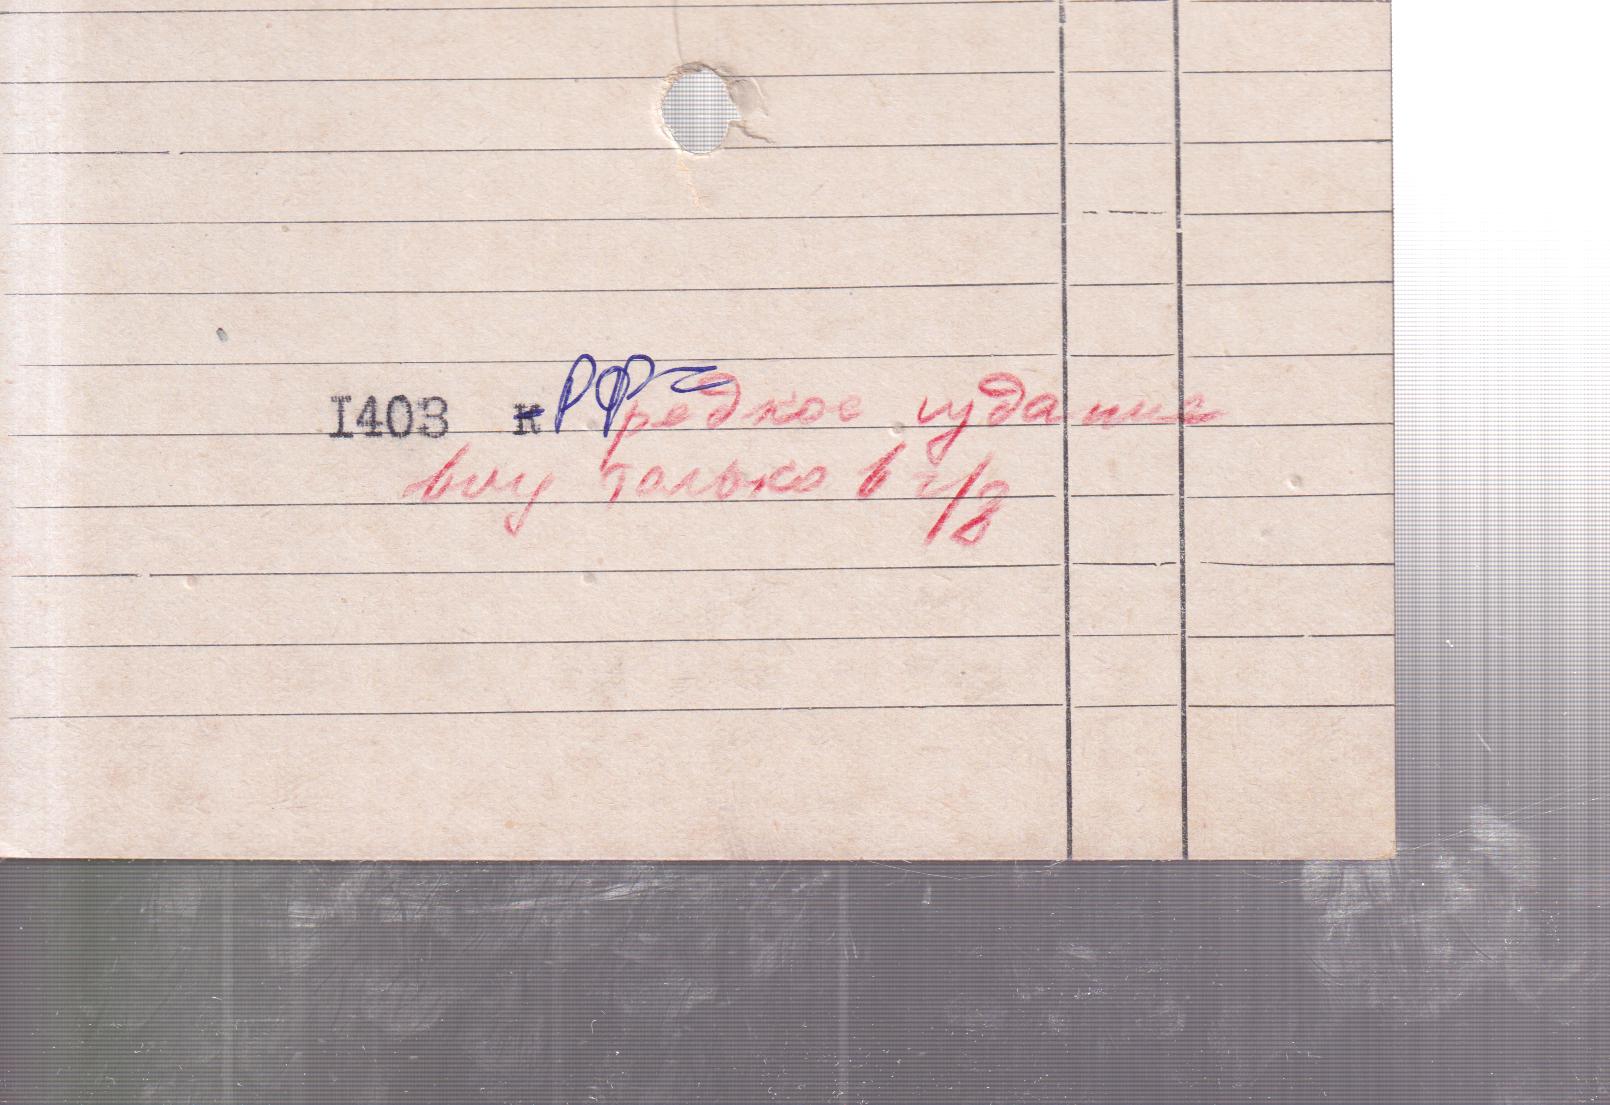 I403 к РФ редкое издание
только в г/з